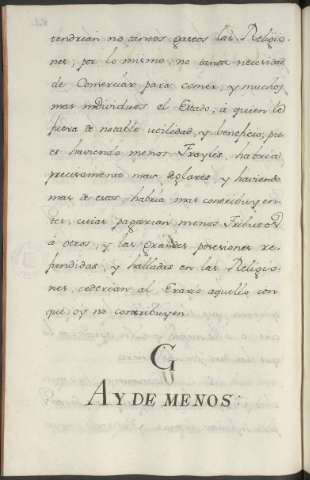 tendrian no tantos gastos las Religio-
nes, por lo mismo, no tanta necesidad
de Comerciar para comer, y muchos
mas individuos el Estado, á quien le
fuera de notable utilidad, y beneficio, pues
haviendo menos Frayles, habria
precisamente mas seglares, y haviendo
mas de estos, habria mas contribuyen-
tes, cuias pagarian menos Tributos
á otros, y las grandes posesiones re-
fundidas, y halladas en las Religio-
nes, cederian al Erario aquello con
que oy no contribuyen
G
AY DE MENOS: